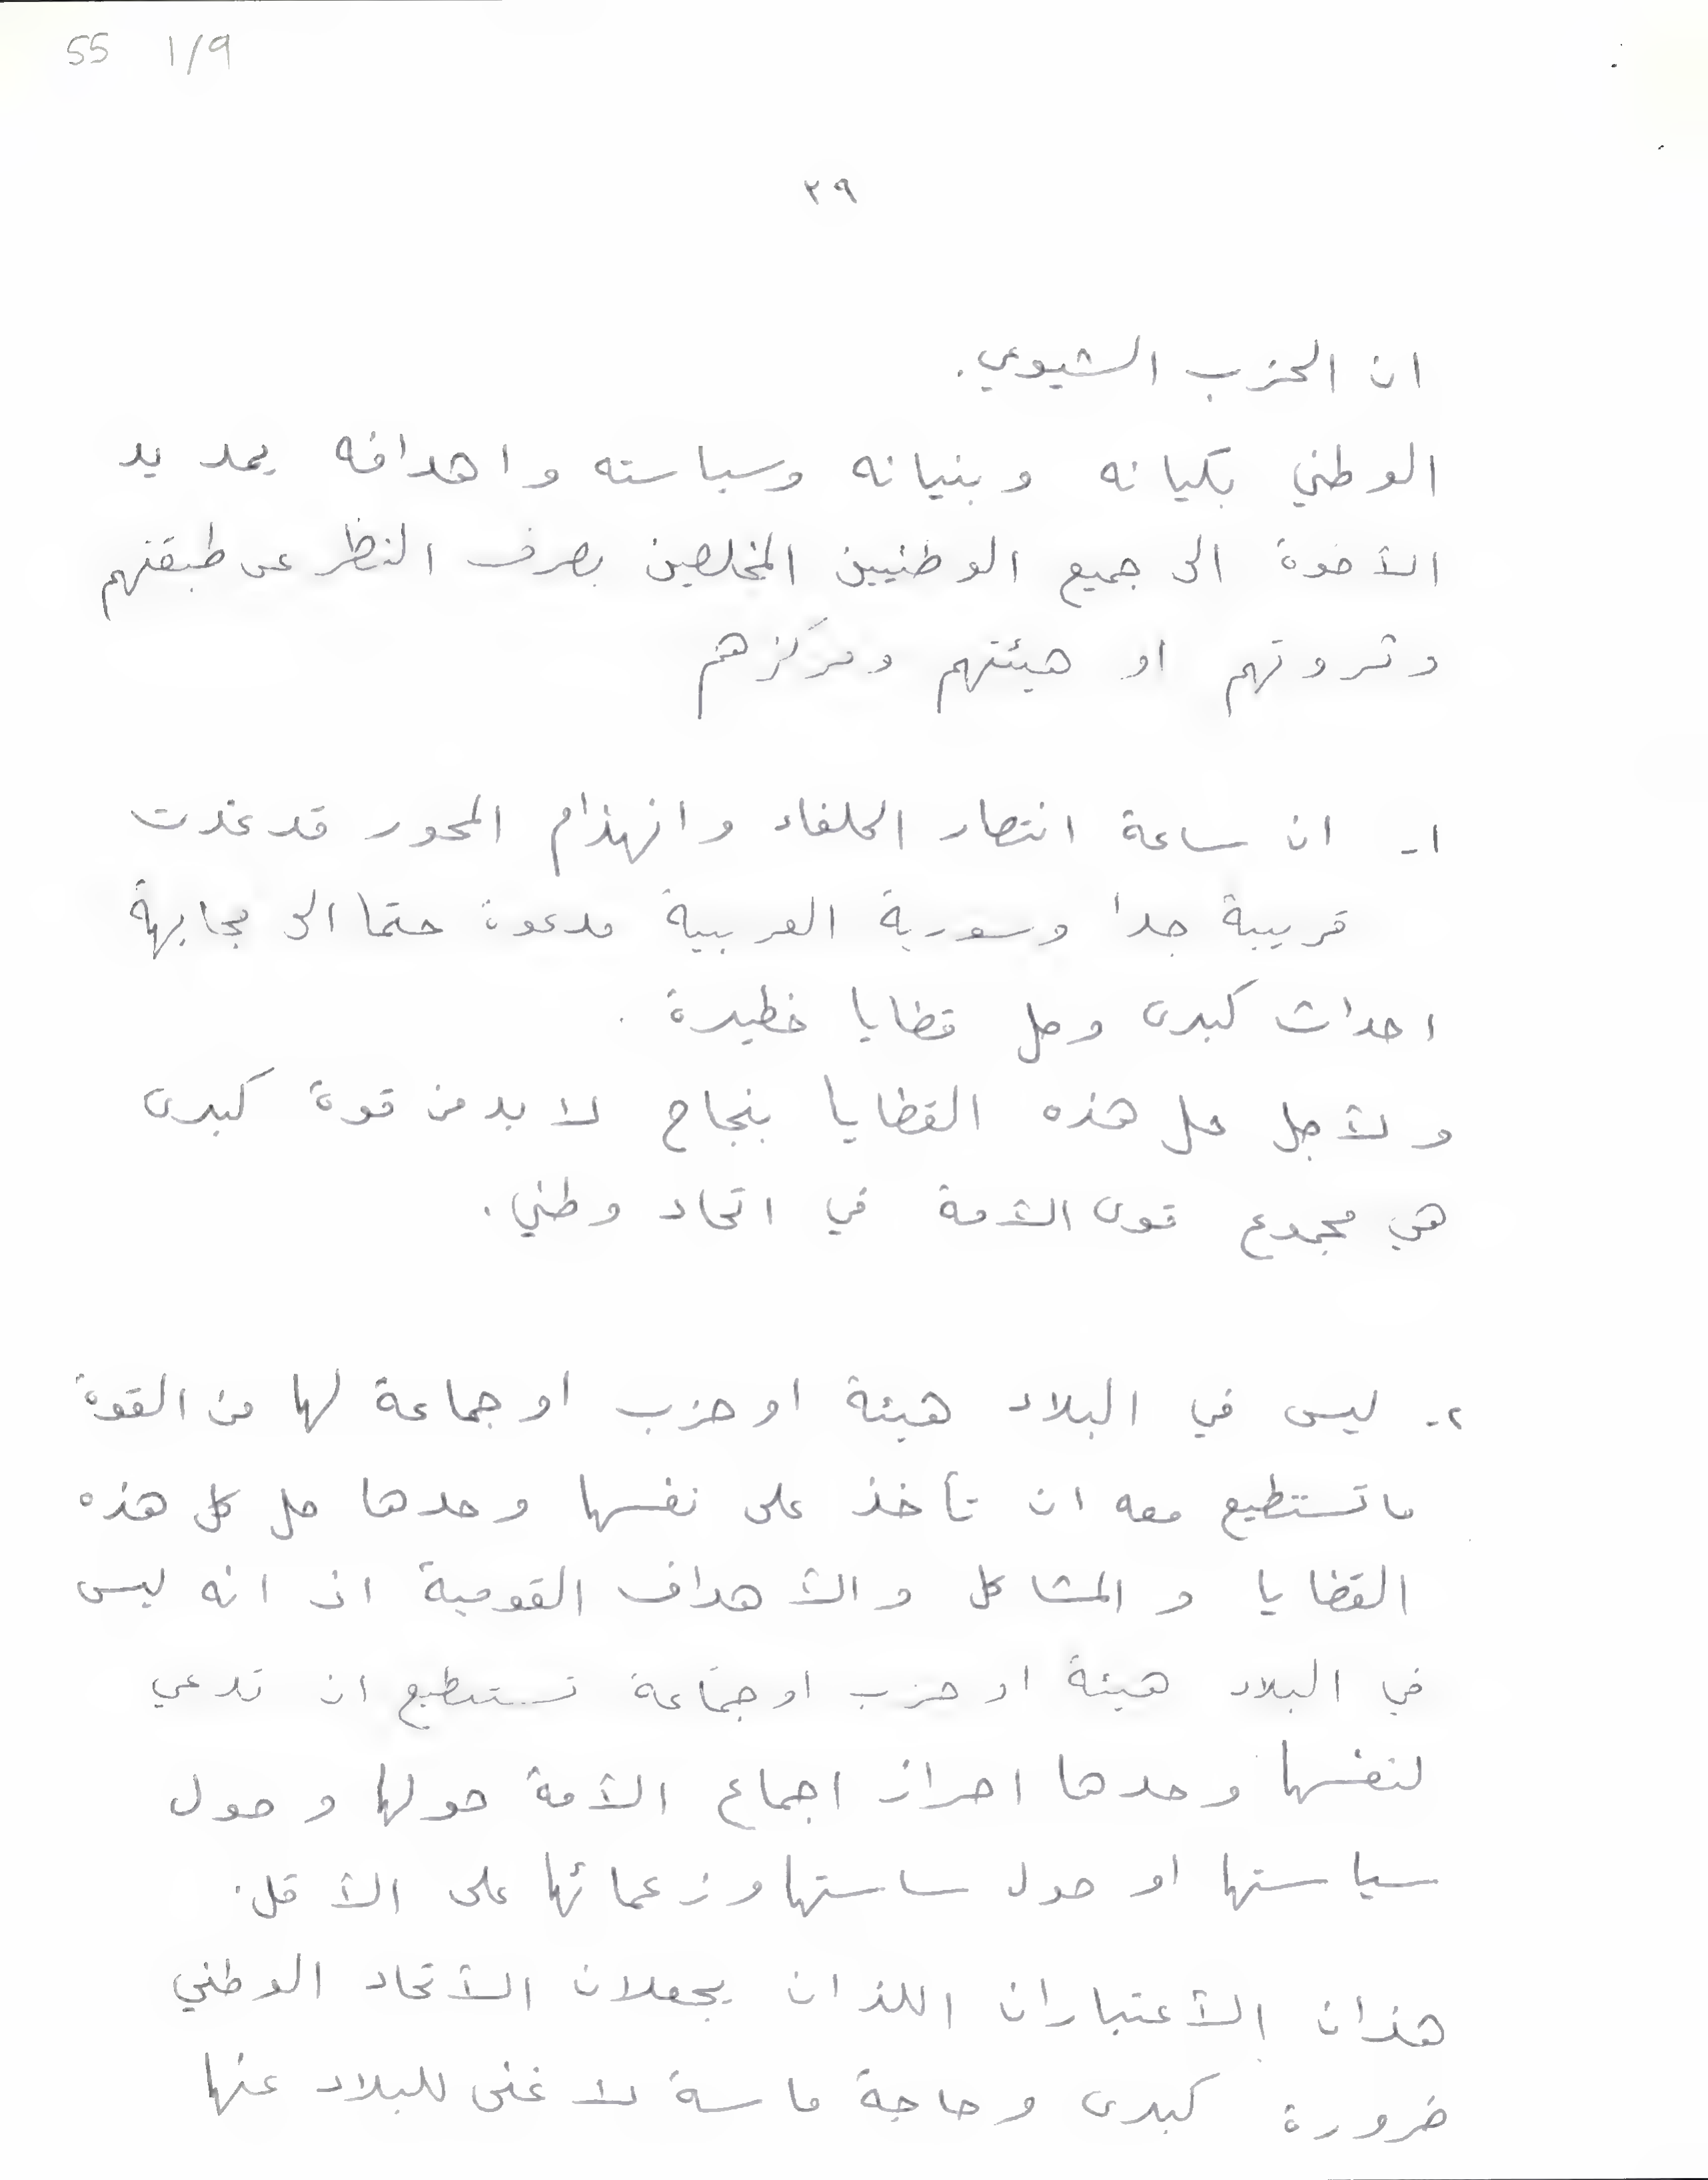 55 1/9
٢٩
ان الحزب الشيوعي.
الوطني بكيانه وبنيانه وسياسته واهدافه يمد يد
الأخوة الى جميع الوطنيين المخلصين بصرف النظر عن طبقتهم
وثروتهم او هيئتهم ومركزهم
١- ان ساعة انتصار الحلفاء وانهذام المحور قد غدت
قريبة جدا وسورية العربية مدعوة حتما الى مجابهة
احداث كبرى وحل قضايا خطيرة.
ولأجل حل هذه القضايا بنجاح لا بد من قوة كبرى
هي مجموع قوى الأمة في اتحاد وطني.
٢- ليس في البلاد هيئة او حزب او جماعة لها من القوة
ما تستطيع معه ان تأخذ على نفسها وحدها حل كل هذه
القضايا والمشاكل والأهداف القومية اذ انه ليس
في البلاد هيئة او حزب او جماعة تستطيع ان تدعي
لنفسها وحدها احراز اجماع الأمة حولها وحول
سياستها او حول ساستها وزعمائها على الأقل.
هذان الأعتباران اللذان يجعلان الأتحاد الوطني
ضرورة كبرى وحاجة ماسة لا غنى للبلاد عنها